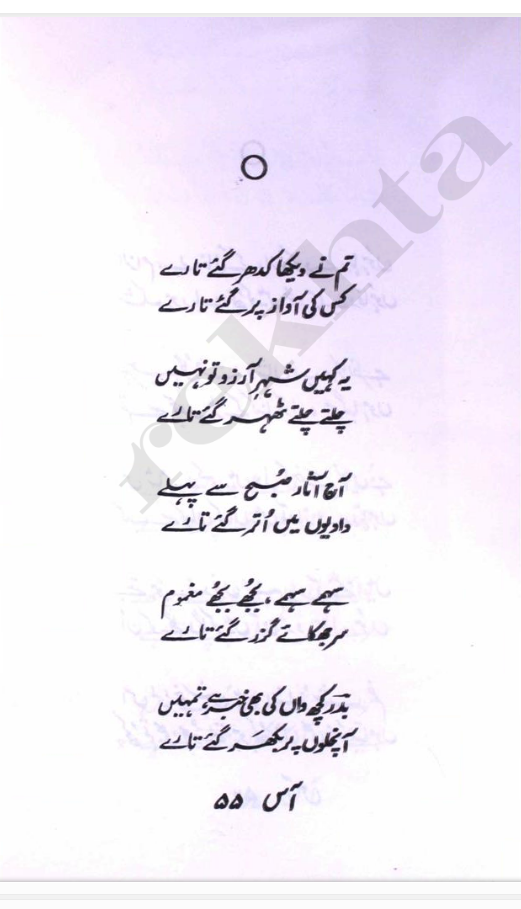 تم نے دیکھا کدھر گئے تارے
کس کی آواز پر گئے تارے
یہ کہیں شہرِ آرزو تو نہیں
چلتے چلتے ٹھہر گئے تارے
آج آثار صُبح سے پہلے
وادیوں میں اُتر گئے تارے
سہمے سہمے، بُجھے بُجھے مغموم
سر جھکائے گزر گئے تارے
بدرؔ کچھ واں کی بھی خبر ہے تمہیں
آنچلوں پہ بکھَر گئے تارے
آس ۵۵
rekhta